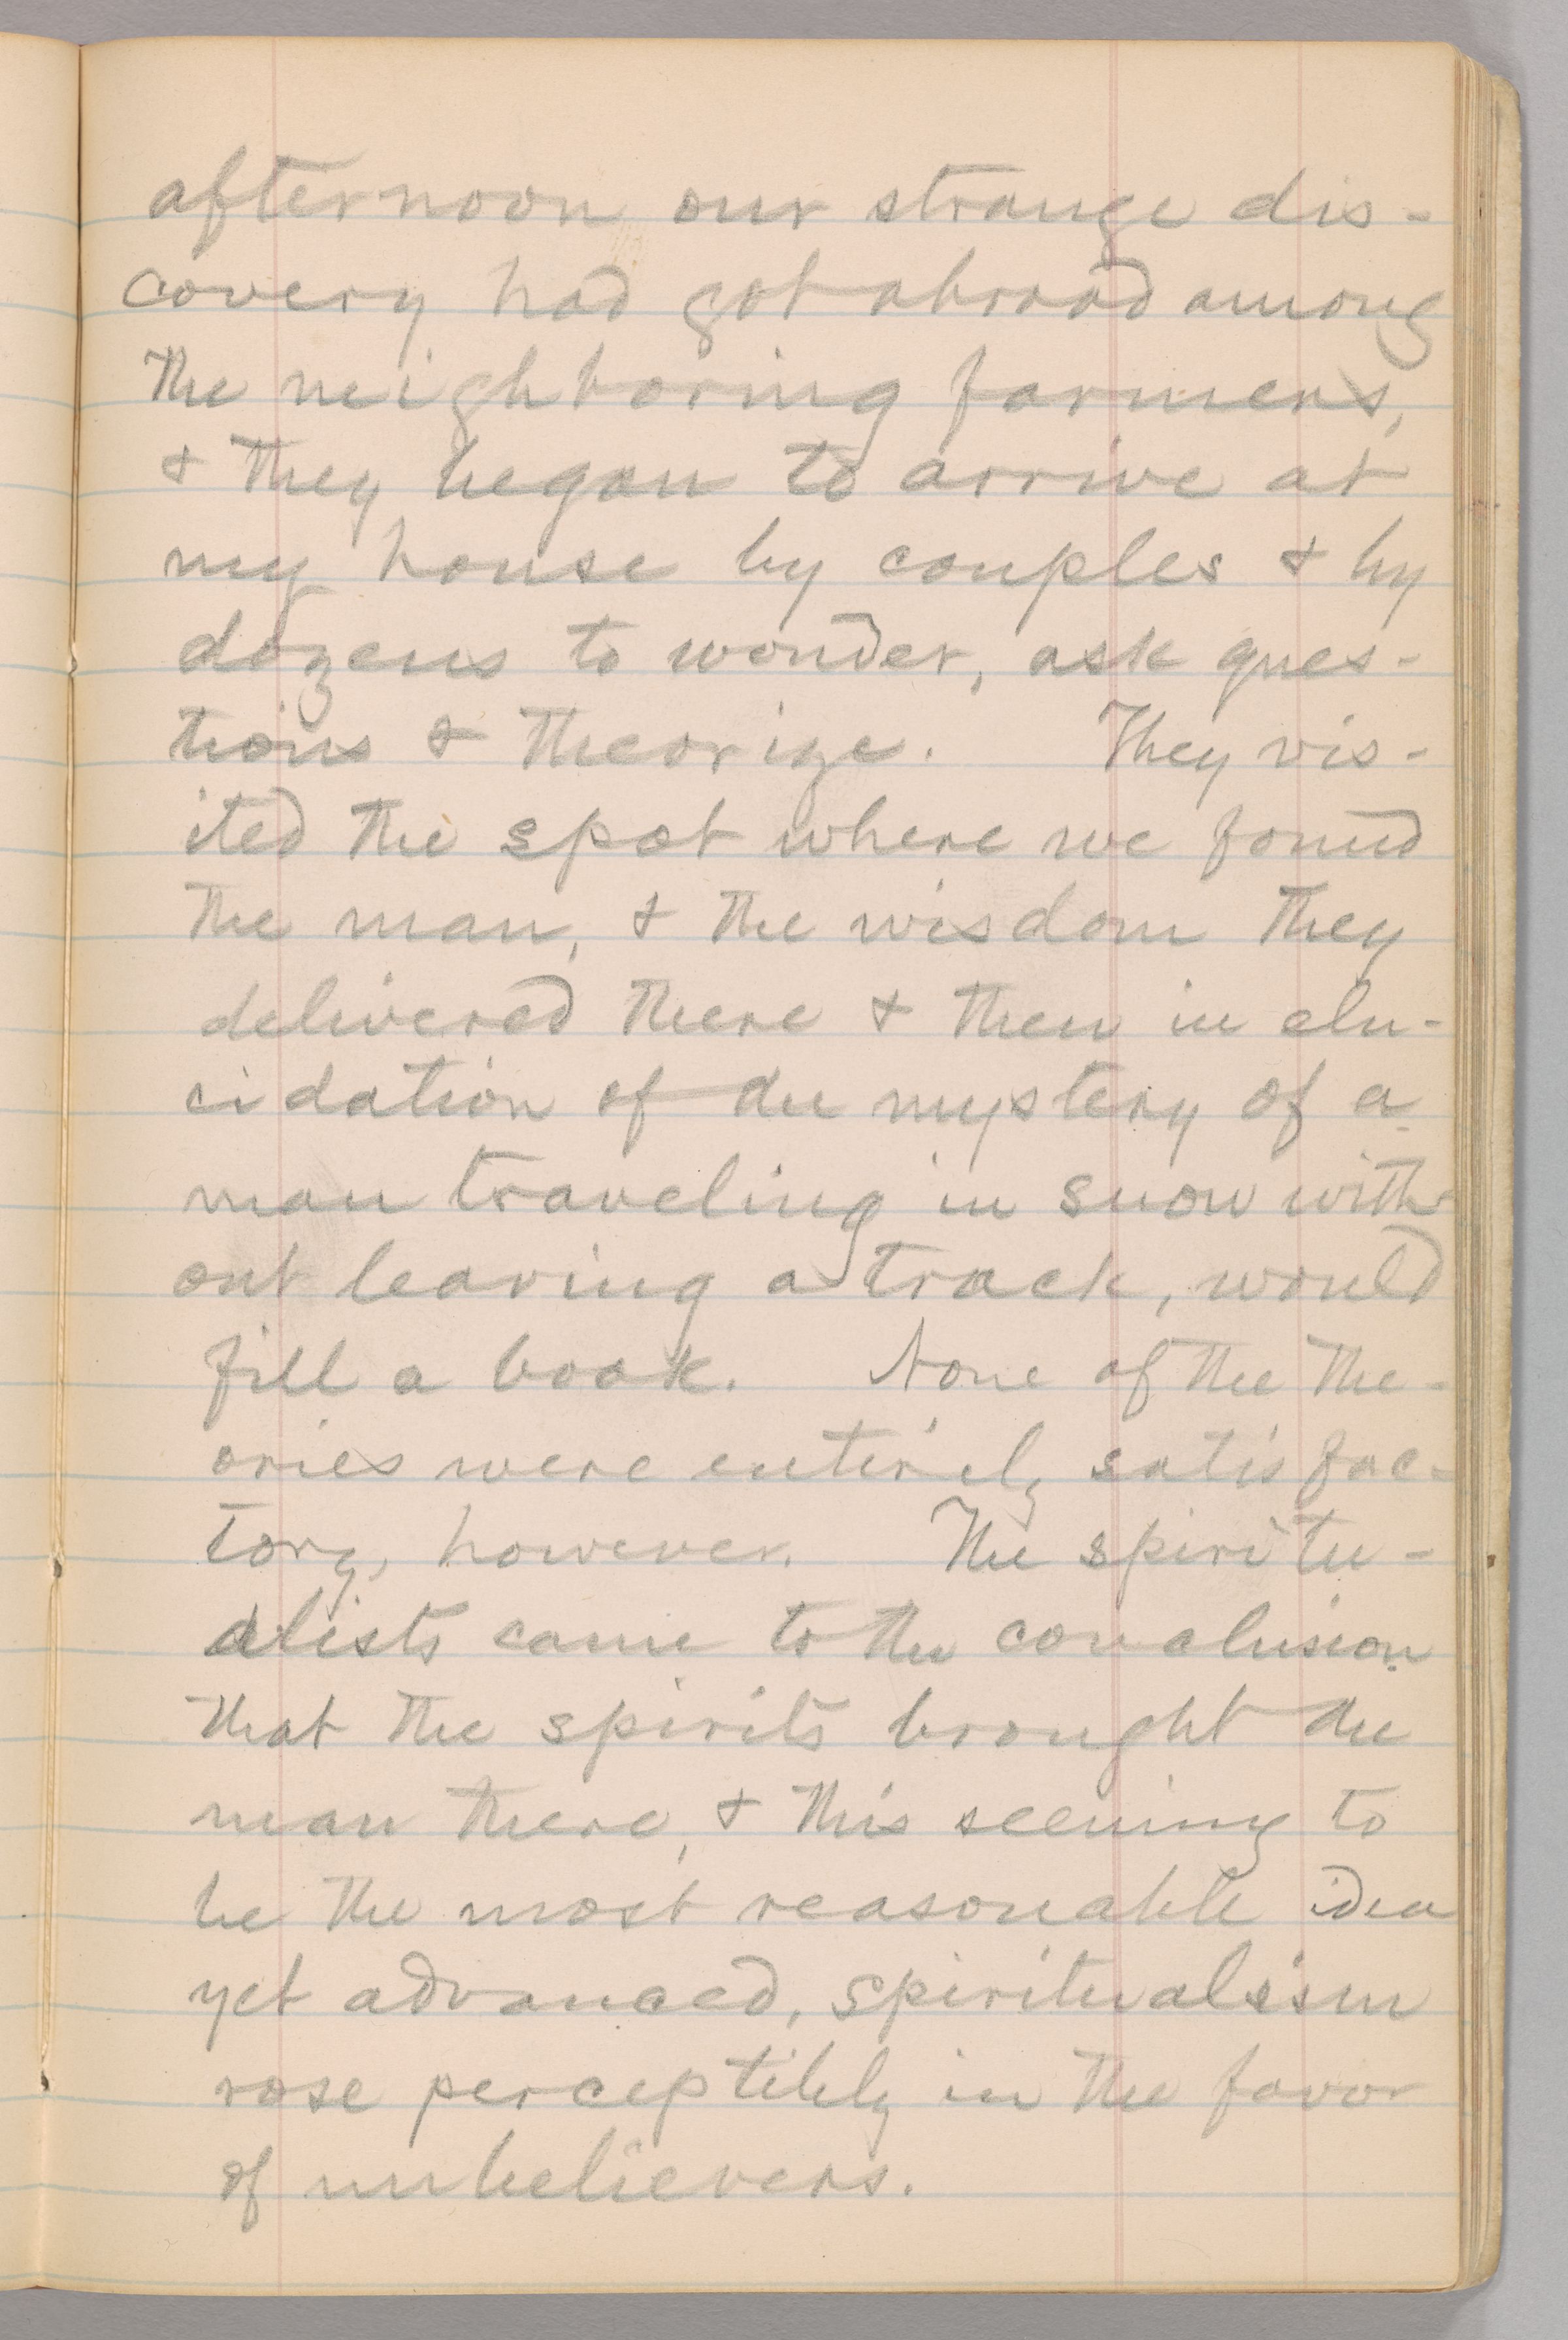 afternoon our strange dis-
covery had got abroad among
the neighboring farmers,
& they began to arrive at
my house by couples & by
dozens to wonder, ask ques-
tions & theorize. They vis-
ited the spot where we found
the man, & the wisdom they
delivered there & then in elu-
cidation of the mystery of a
man traveling in snow with-
out leaving a track, would
fill a book. None of the the-
ories were entirely satisfac-
tory, however. The spiritu-
alists came to the conclusion
that the spirits brought the
man there, & this seeming to
be the most reasonable idea
yet advanced, spiritualism
rose perceptibly in the favor
of unbelievers.